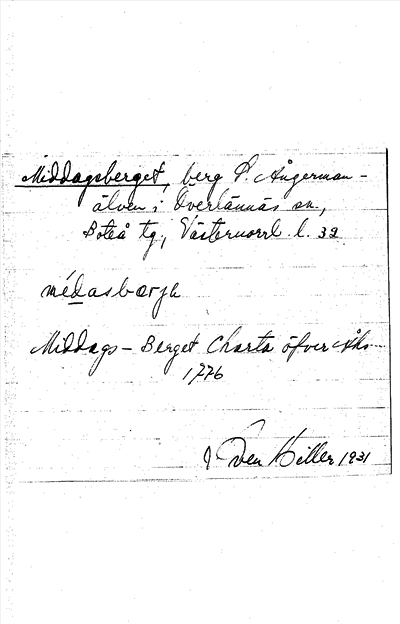 Middagsberget, berg S. Ångerman-
älven i Överlännäs sn,
Boteå tg, Västernorrl. l. 32
médasbærjh
Middags-Berget Charta öfver Åhs
1776
Sven Hiller 1931